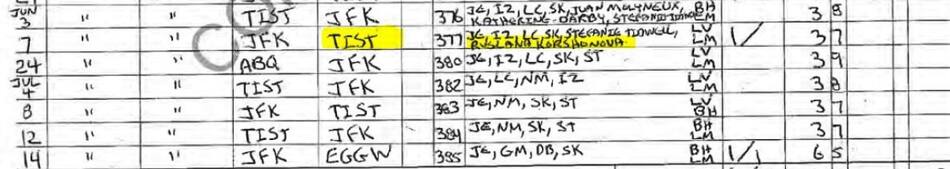 JUN 3 " " TIST JFK 376 JE, IZ, LC, SK, JUAN MOLYNEUX, BH 3 8
KATHERINE DARBY, LM
7 " " JFK TIST 377 JE, IZ, LC, SK, STEFANIE TIDWELL, LV 1/ 3 7
RUSLANA KORSHONOVA LM
24 " " ABQ JFK 380 JE, IZ, LC, SK, ST LV LM 3 9
JUL 4 " " TIST JFK 382 JE, LC, NM, IZ LV LM 3 8
8 " " JFK TIST 383 JE, NM, SK, ST LV BH 3 7
12 " " TIST JFK 384 JE, NM, SK, ST BH LM 3 7
14 " " JFK EGGW 385 JE, GM, DB, SK BH LM 1/1 6 5